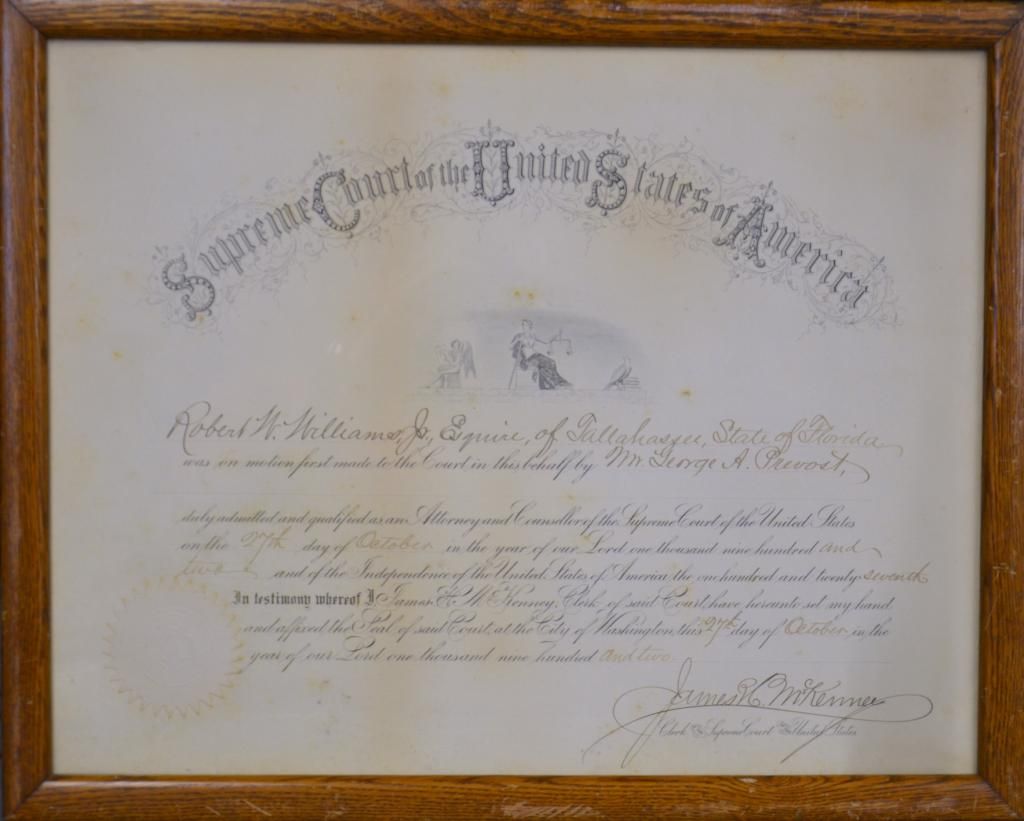 Supreme Court of the United States of America
Robert W. Williams, Jr., Esquire, of Tallahassee, State of Florida
was on motion first made to the Court in this behalf by Mr. George A. Prevost,
duly admitted and qualified as an Attorney and Counsellor of the Supreme Court of the United States
on the 27th day of October in the year of our Lord one thousand nine hundred and
two and of the Independence of the United States of America the one hundred and twenty-seventh
In testimony whereof I, James H. McKenney, Clerk of said Court, have hereunto set my hand
and affixed the Seal of said Court, at the City of Washington, this 27th day of October in the
year of our Lord one thousand nine hundred and two.
James H. McKenney
Clerk of the Supreme Court of the United States